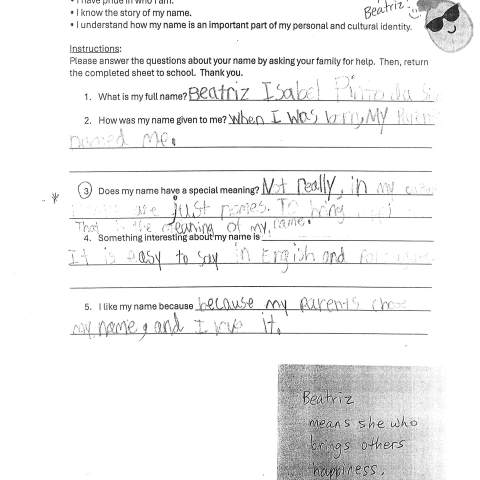 • I have pride in who I am.
Beatriz!
• I know the story of my name.
• I understand how my name is an important part of my personal and cultural identity.
Instructions:
Please answer the questions about your name by asking your family for help. Then, return
the completed sheet to school. Thank you.
1. What is my full name? Beatriz Isabel Pinto da
2. How was my name given to me? When I was born, My
named me.
3 Does my name have a special meaning? Not really, in my
are just names. To bring
That is the meaning of my name.
4. Something interesting about my name is
It is easy to say in English and
5. I like my name because because my parents chose
my name, and I love it.
Beatriz
means she who
brings others
happiness.